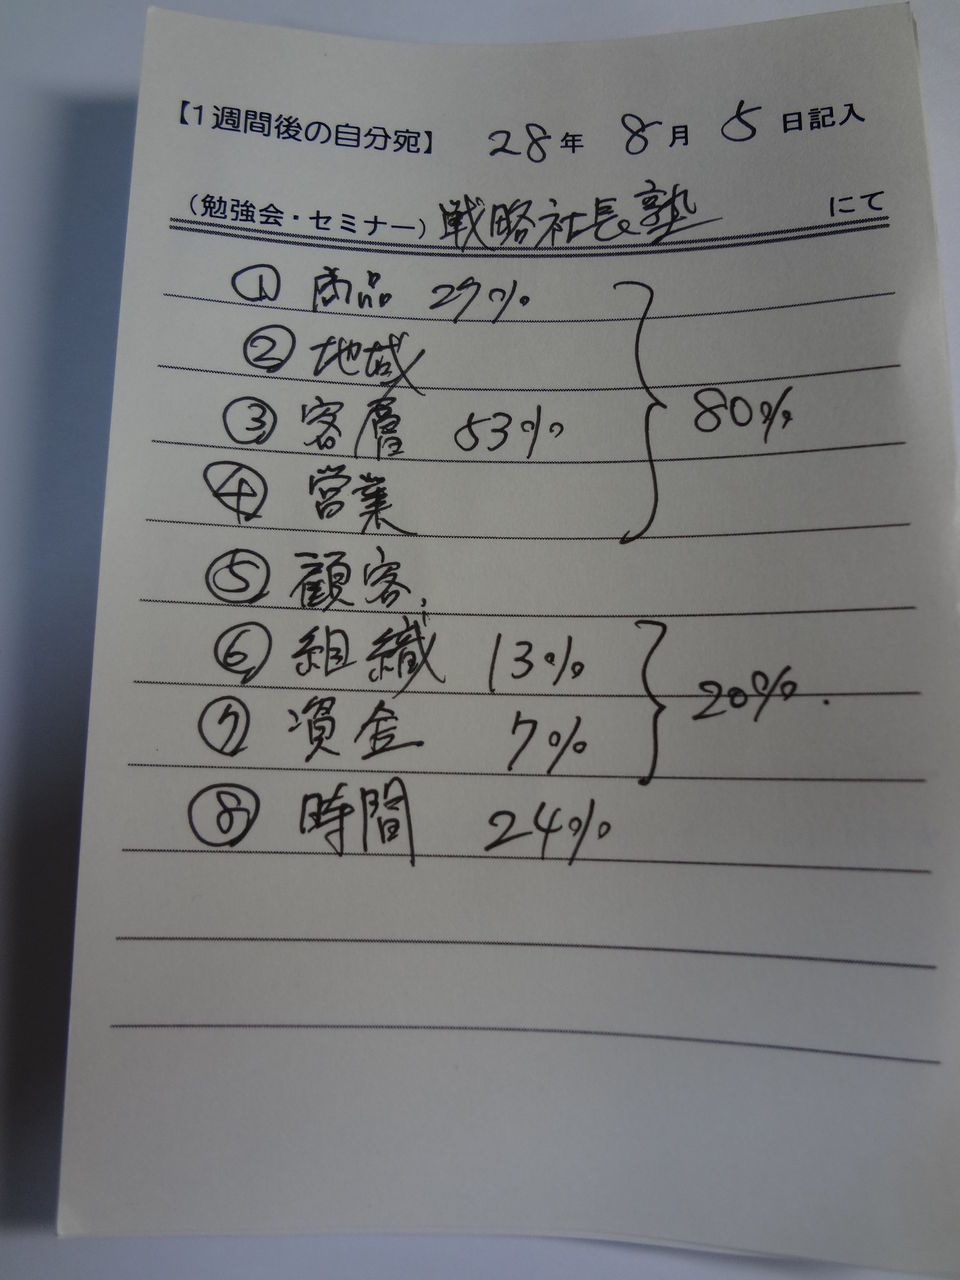 【1週間後の自分宛】 28年 8月 5日記入
（勉強会・セミナー）戦略社長塾 にて
① 商品 27%
② 地域
③ 客層 53% 80%
④ 営業
⑤ 顧客
⑥ 組織 13%
20%.
⑦ 資金 7%
⑧ 時間 24%